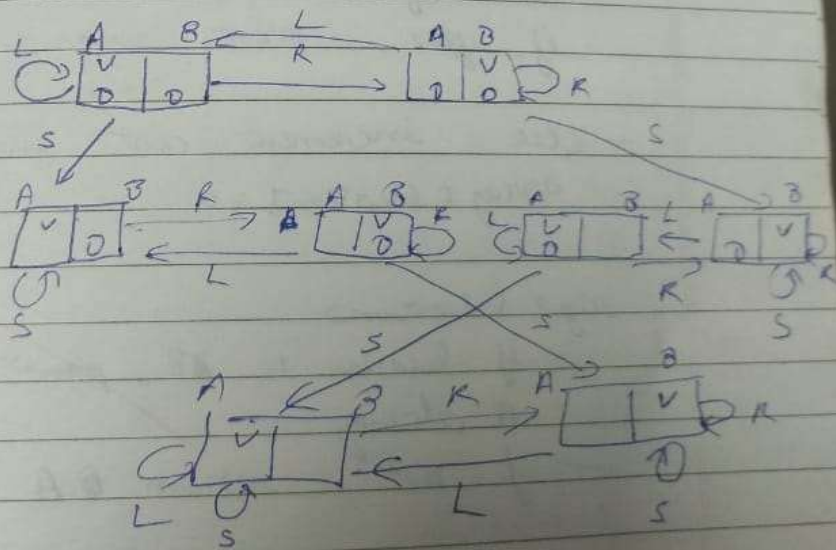 L
A B L R A B
L V D D D V D R
S S
A B R A B A B L A B
V D V D R L V D D V R
S L R S
S S
A B R A B
V V R
L S L S